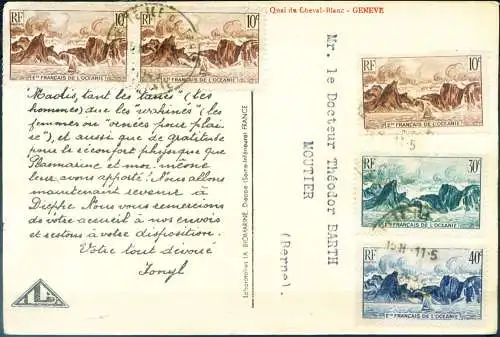 Quai du Cheval-Blanc - GENEVE
RF 10c
Ets FRANÇAIS DE L'OCÉANIE
RF 10c
Ets FRANÇAIS DE L'OCÉANIE
"Madis, tant les "tanés" (les
hommes) que les "wahinés" (les
femmes ou "vénées pour plai-
se"), et aussi que de gratitude
pour le réconfort physique que
Plasmarine et moi-même
leur avons apporté! Nous allons
maintenant revenir à
Dieppe. Nous vous remercions
de votre accueil à nos envois
et restons à votre disposition.
Votre tout dévoué
Ionyl
Laboratoires LA BIOMARINE, Dieppe (Seine-Inférieure) FRANCE
Mr. le Docteur Théodor BARTH
MOUTIER
(Berne).
RF 10c
Ets FRANÇAIS DE L'OCÉANIE
RF 30c
Ets FRANÇAIS DE L'OCÉANIE
15H -11-5
RF 40c
Ets FRANÇAIS DE L'OCÉANIE